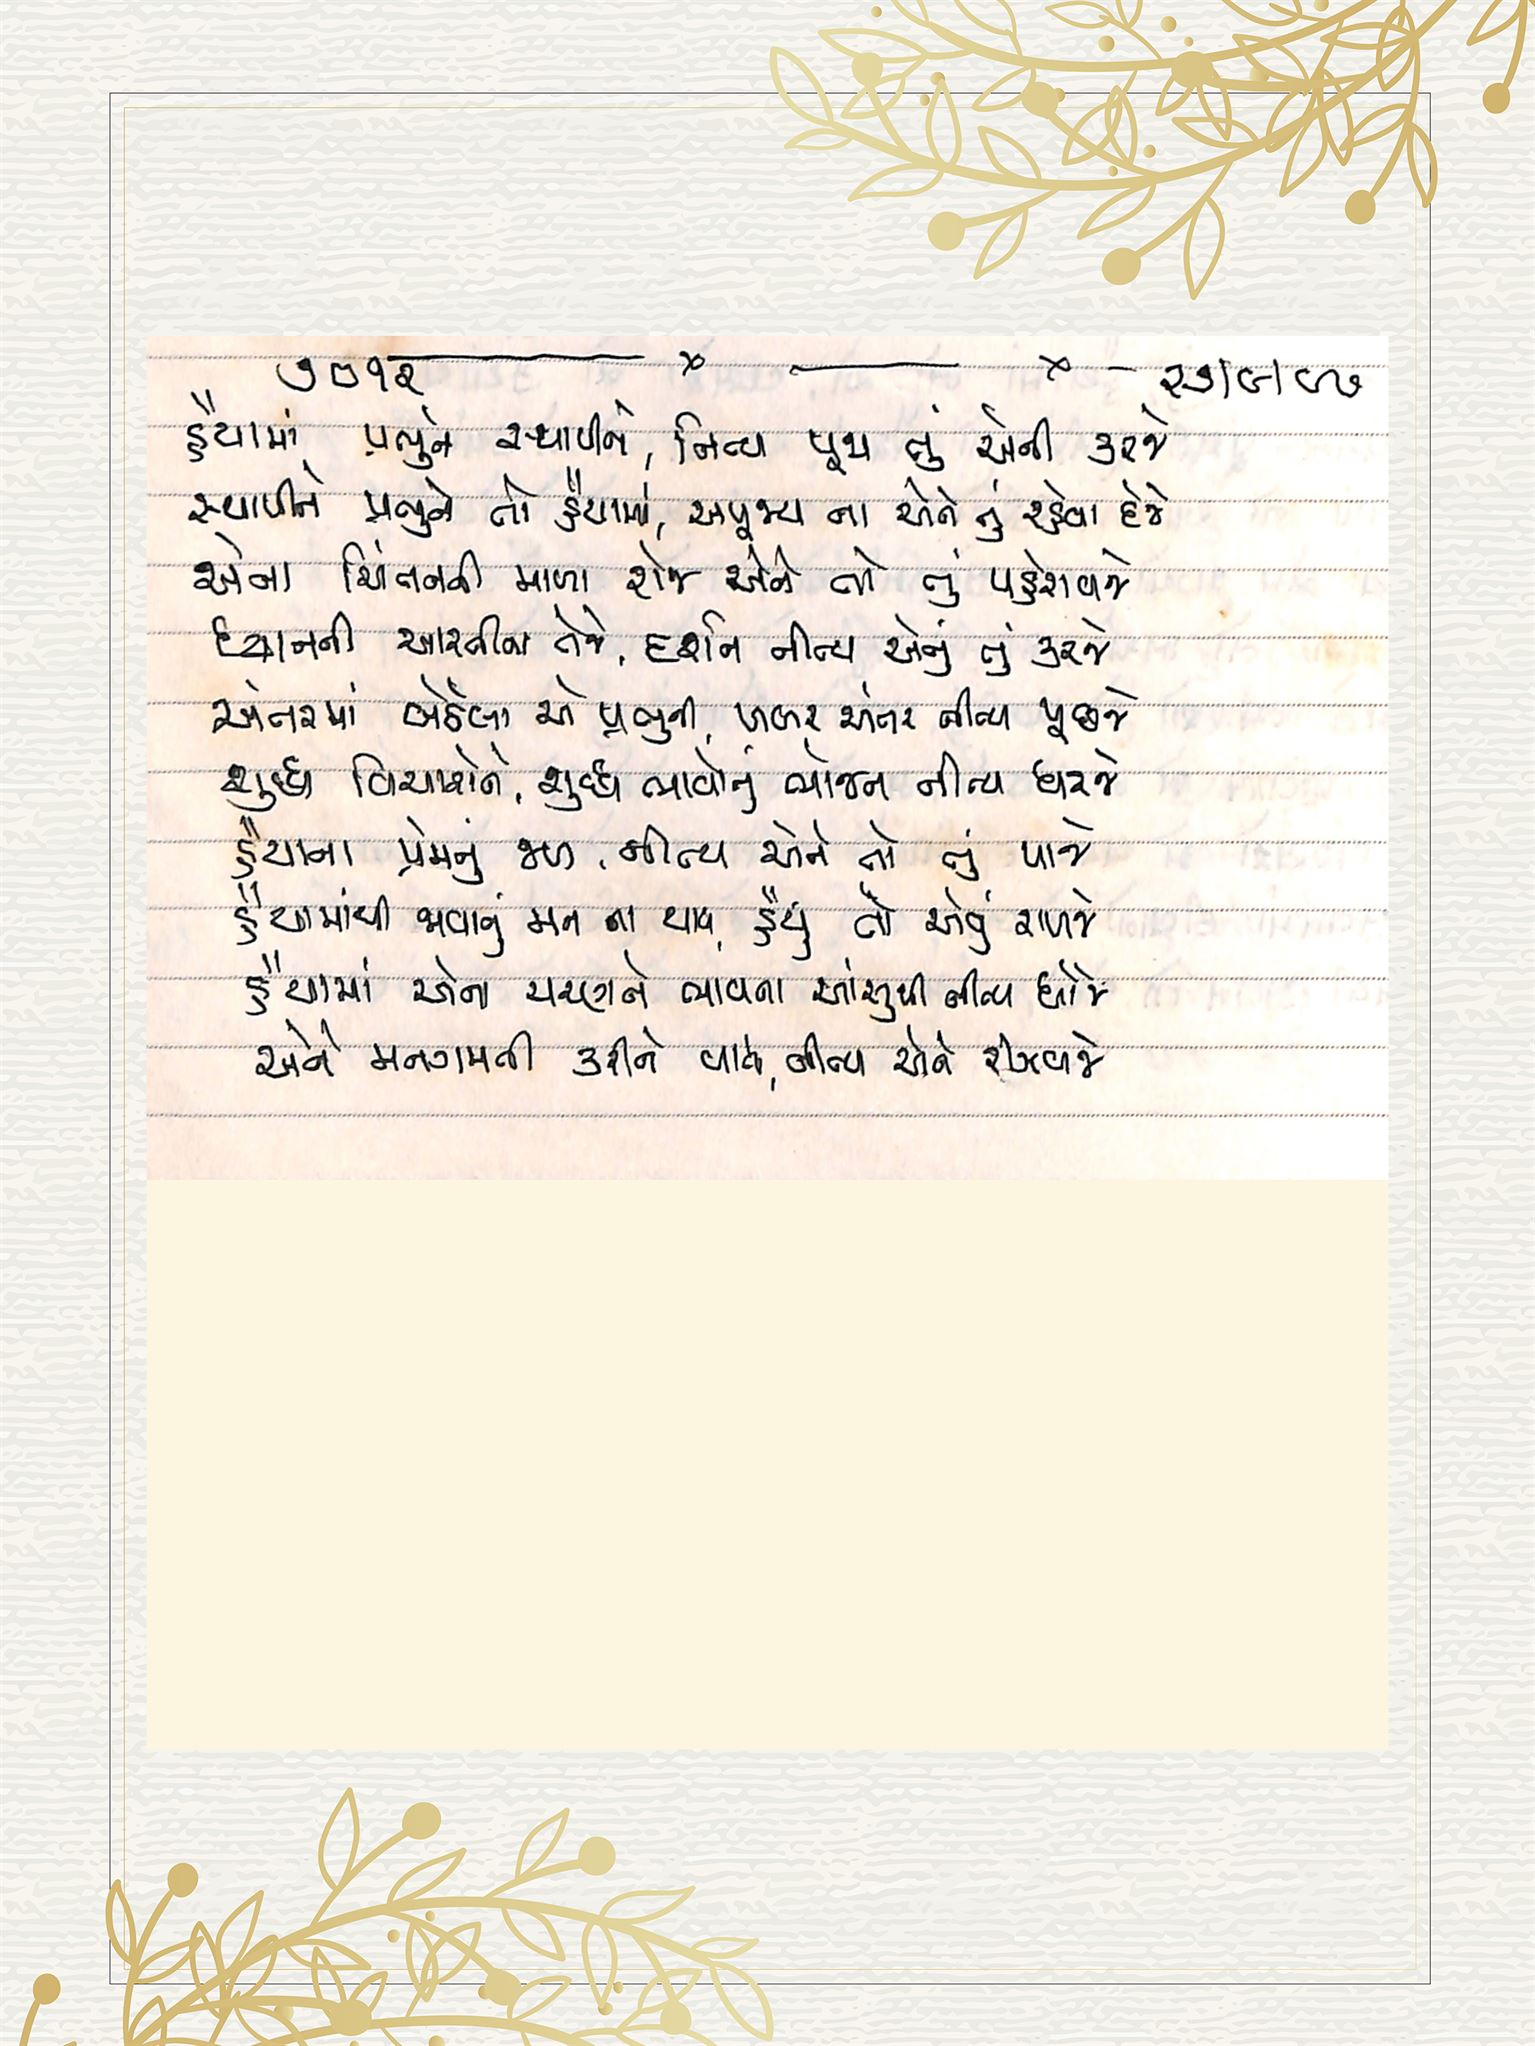 ૭૦૧૨ ——— × ——— × — ૨૭/૯/૯૭
હૈયામાં પ્રભુને સ્થાપીને, નિત્ય પૂજા તું એની કરજે
સ્થાપીને પ્રભુને તો હૈયામાં, અપૂજ્ય ના એને તું રહેવા દેજે
એના ચિંતનની માળા રોજ એને તો તું પહેરાવજે
ધ્યાનની આરતીના તેજે, દર્શન નીત્ય એનું તું કરજે
અંતરમાં બેઠેલા એ પ્રભુની, ખબર અંતર નીત્ય પૂછજે
શુદ્ધ વિચારોને, શુદ્ધ ભાવોનું ભોજન નીત્ય ધરજે
હૈયાના પ્રેમનું જળ, નીત્ય એને તો તું પાજે
હૈયામાંથી જાવાનું મન ના થાય, હૈયું તો એવું રાખજે
હૈયામાં એના ચરણને ભાવના આંસુથી નીત્ય ધોજે
એને મનગમતી કરીને વાત, નીત્ય એને રીઝવજે